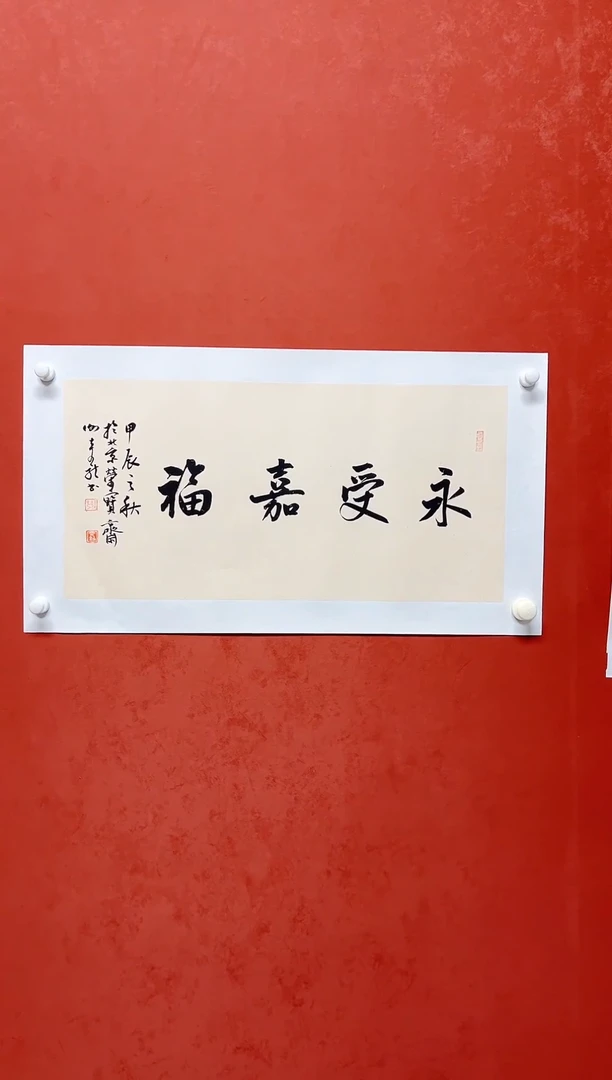 永受嘉福
甲辰之秋
於北京榮寶齋